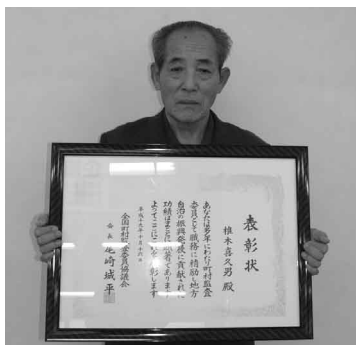 表彰状
椎木喜久男 殿
あなたは多年にわたり町村監査
委員として職務に精励し地方
自治の振興発展に貢献された
功績はまことに顕著であります
よってここにこれを表彰します
平成十五年十月十六日
全国町村監査委員協議会
会長 尾崎城平